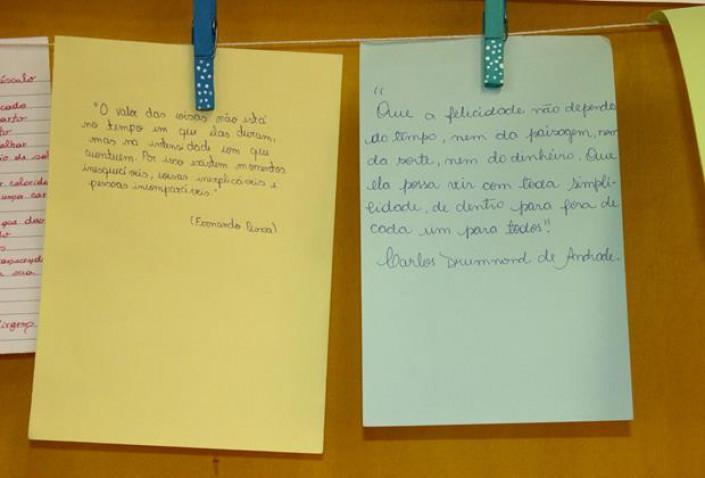 ísculo
cada
"O valor das coisas não está
no tempo em que elas duram,
mas na intensidade com que
acontecem. Por isso existem momentos
inesquecíveis, coisas inexplicáveis e
pessoas incomparáveis."
(Fernando Pessoa)
"
Que a felicidade não dependa
do tempo, nem da paisagem, nem
da sorte, nem do dinheiro. Que
ela possa vir com toda simpli-
cidade, de dentro para fora de
cada um para todos".
Carlos Drummond de Andrade.